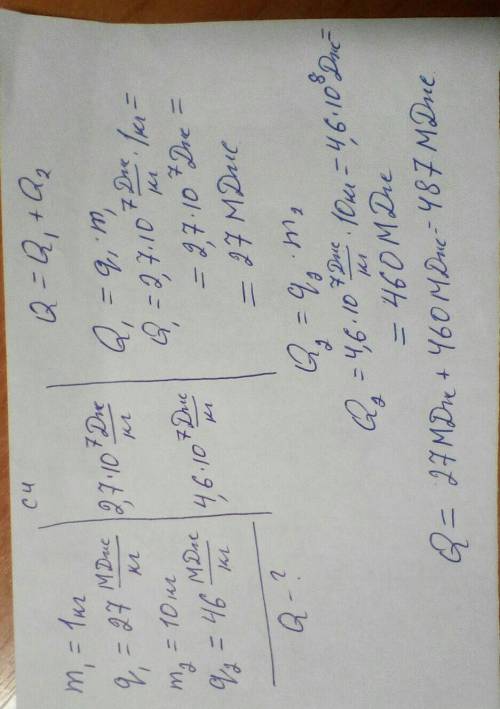 m₁ = 1 кг
q₁ = 27 МДж/кг
m₂ = 10 кг
q₂ = 46 МДж/кг
Q - ?
СИ
2,7·10⁷ Дж/кг
4,6·10⁷ Дж/кг
Q = Q₁ + Q₂
Q₁ = q₁ · m₁
Q₁ = 2,7·10⁷ Дж/кг · 1кг =
= 2,7·10⁷ Дж =
= 27 МДж
Q₂ = q₂ · m₂
Q₂ = 4,6·10⁷ Дж/кг · 10кг = 4,6·10⁸ Дж =
= 460 МДж
Q = 27 МДж + 460 МДж = 487 МДж